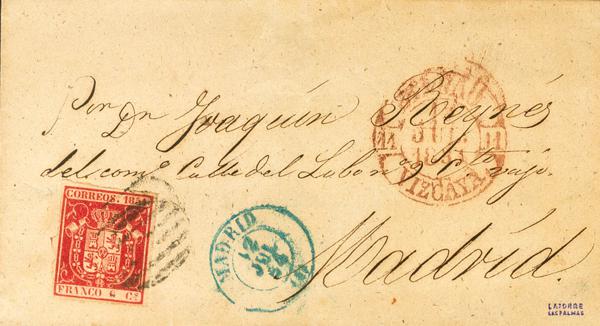 Por Dn Joaquín Reynés
del com.º Calle del Lobo nº 9 rto bajo
Madrid.
VIZCAYA
11 JUL. 11
CORREOS. 185
FRANCO 6 Cs
MADRID
12 JUL
LATORRE
LAS PALMAS